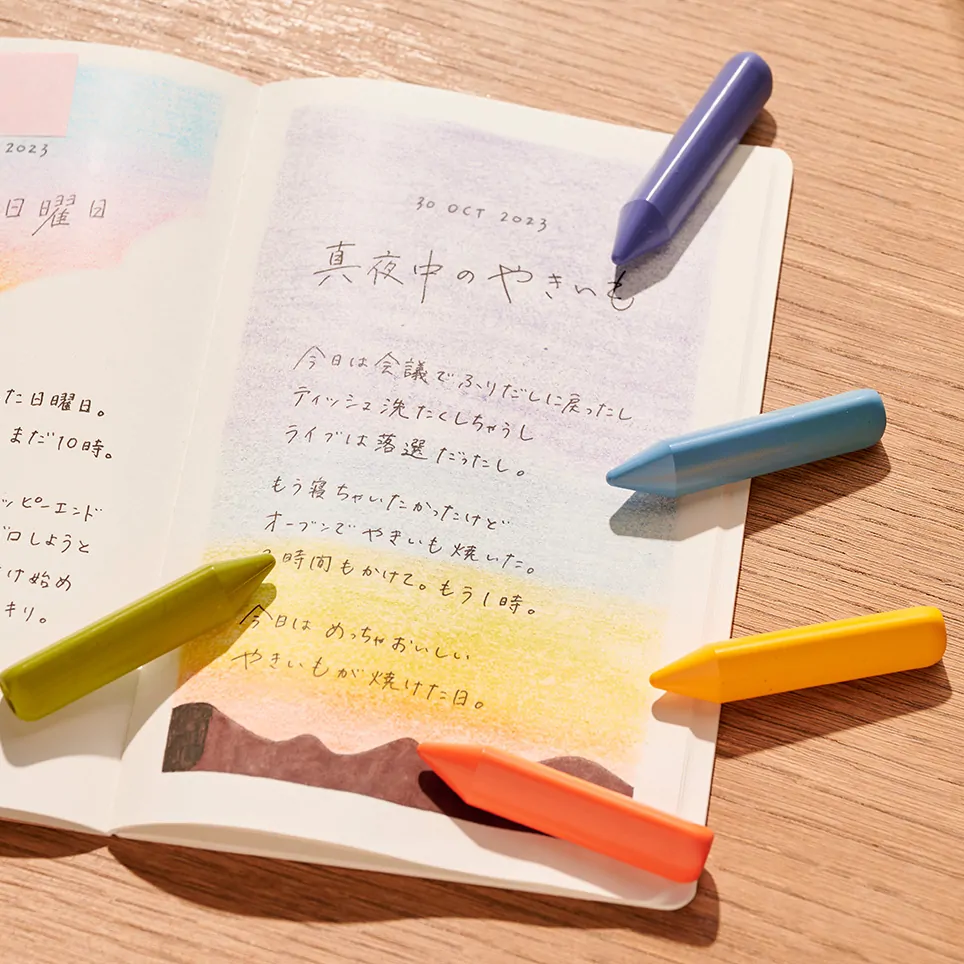 2023
日曜日
た日曜日。
まだ10時。
ッピーエンド
ゴロしようと
け始め
キリ。
30 OCT 2023
真夜中のやきいも
今日は会議でふりだしに戻ったし
ティッシュ洗たくしちゃうし
ライブは落選だったし。
もう寝ちゃいたかったけど
オーブンでやきいも焼いた。
時間もかけて。もう1時。
今日はめっちゃおいしい
やきいもが焼けた日。